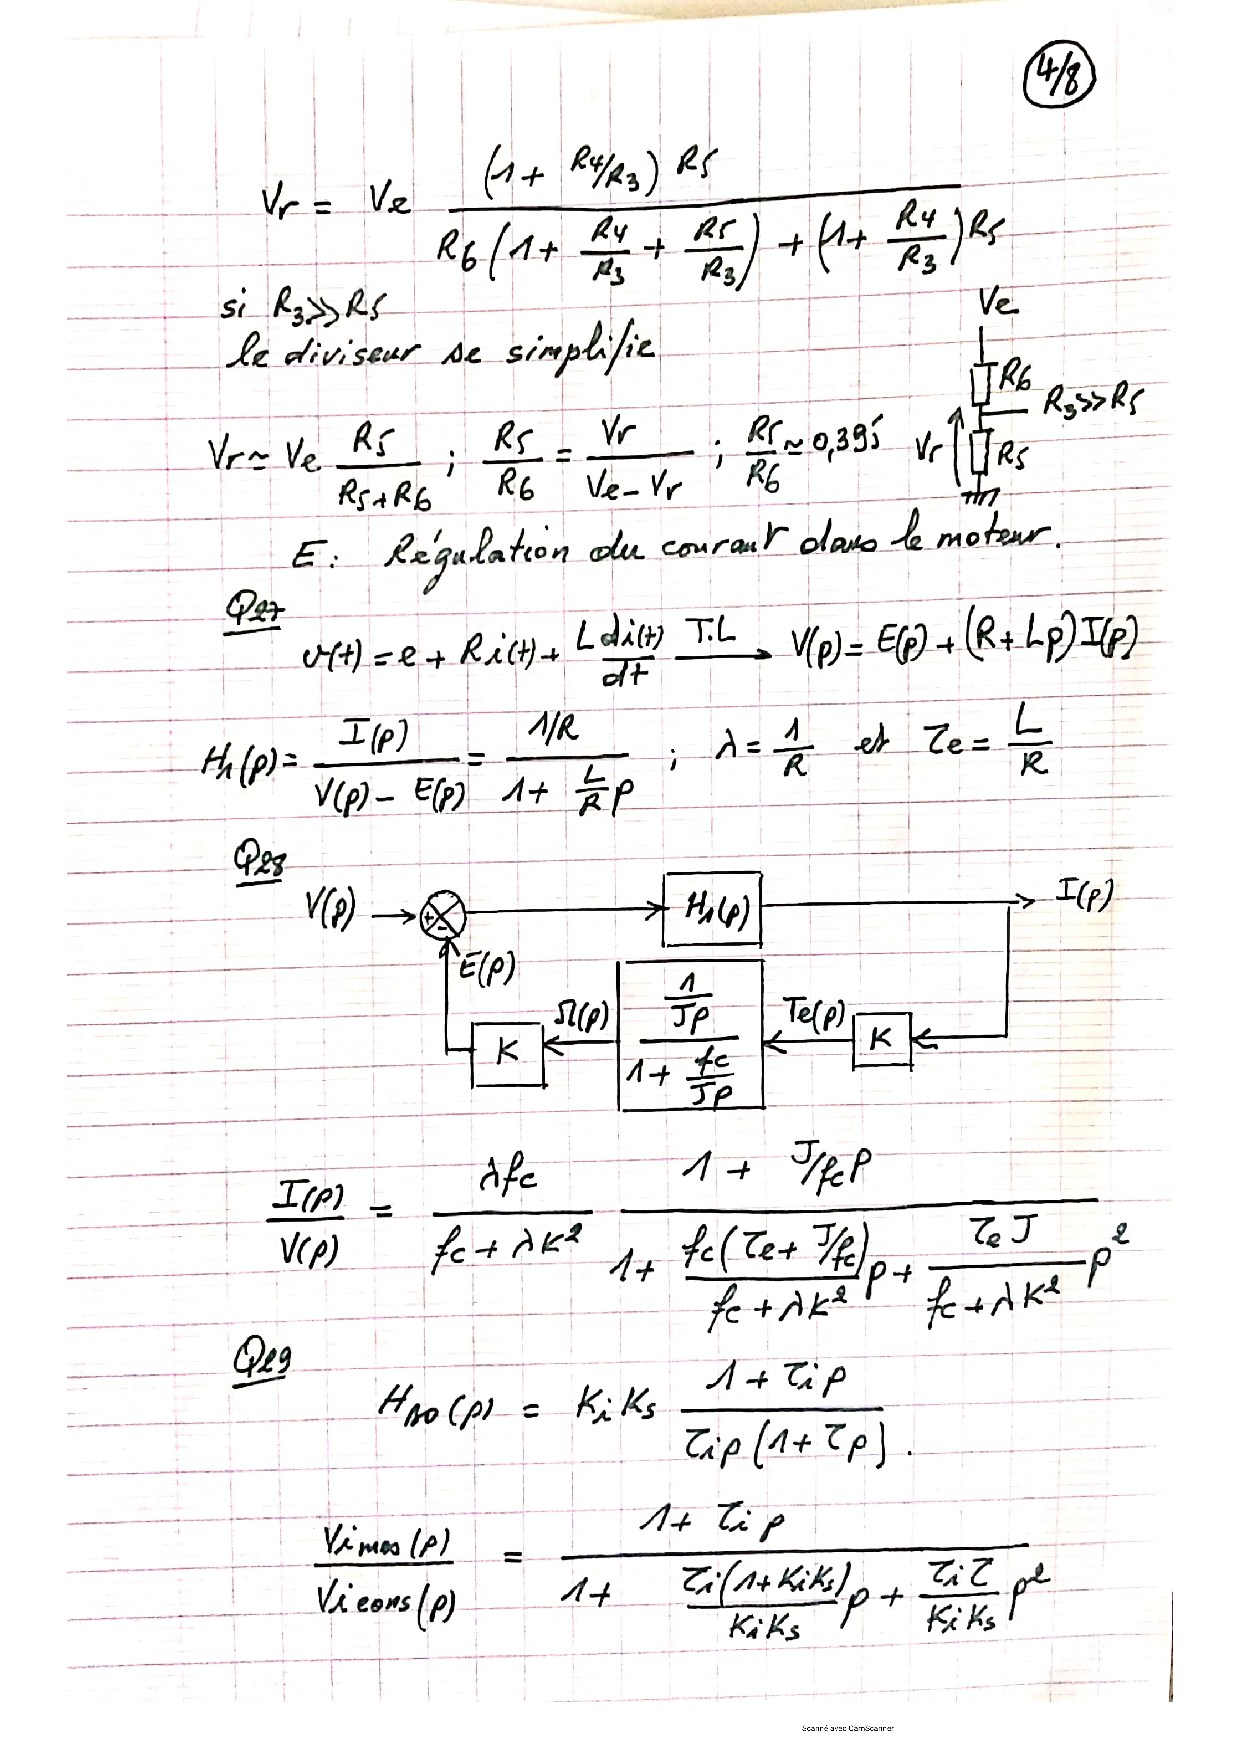 4/8
Vr = Ve (1 + R4/R3) R5 / (R6 (1 + R4/R3 + R5/R3) + (1 + R4/R3) R5)
si R3 >> R5
le diviseur se simplifie
Ve
R6
R3 >> R5
Vr
R5
Vr ≃ Ve R5/(R5+R6) ; R5/R6 = Vr/(Ve - Vr) ; R5/R6 ≃ 0,395
E : Régulation du courant dans le moteur.
Q27
v(t) = e + R i(t) + L di(t)/dt T.L → V(p) = E(p) + (R + Lp) I(p)
H1(p) = I(p)/(V(p) - E(p)) = (1/R)/(1 + L/R p) ; λ = 1/R et τe = L/R
Q28
V(p) → + - → H1(p) → I(p)
E(p)
K Ω(p) (1/Jp)/(1 + fc/Jp) Te(p) K
I(p)/V(p) = λfc/(fc + λK²) (1 + J/fc p)/(1 + fc(τe + J/fc)/(fc + λK²) p + τe J/(fc + λK²) p²)
Q29
HBO(p) = Ki Ks (1 + τi p)/(τi p (1 + τp)).
Vimes(p)/Vicons(p) = (1 + τi p)/(1 + τi(1 + KiKs)/(KiKs) p + τi τ/(Ki Ks) p²)
Scanné avec CamScanner